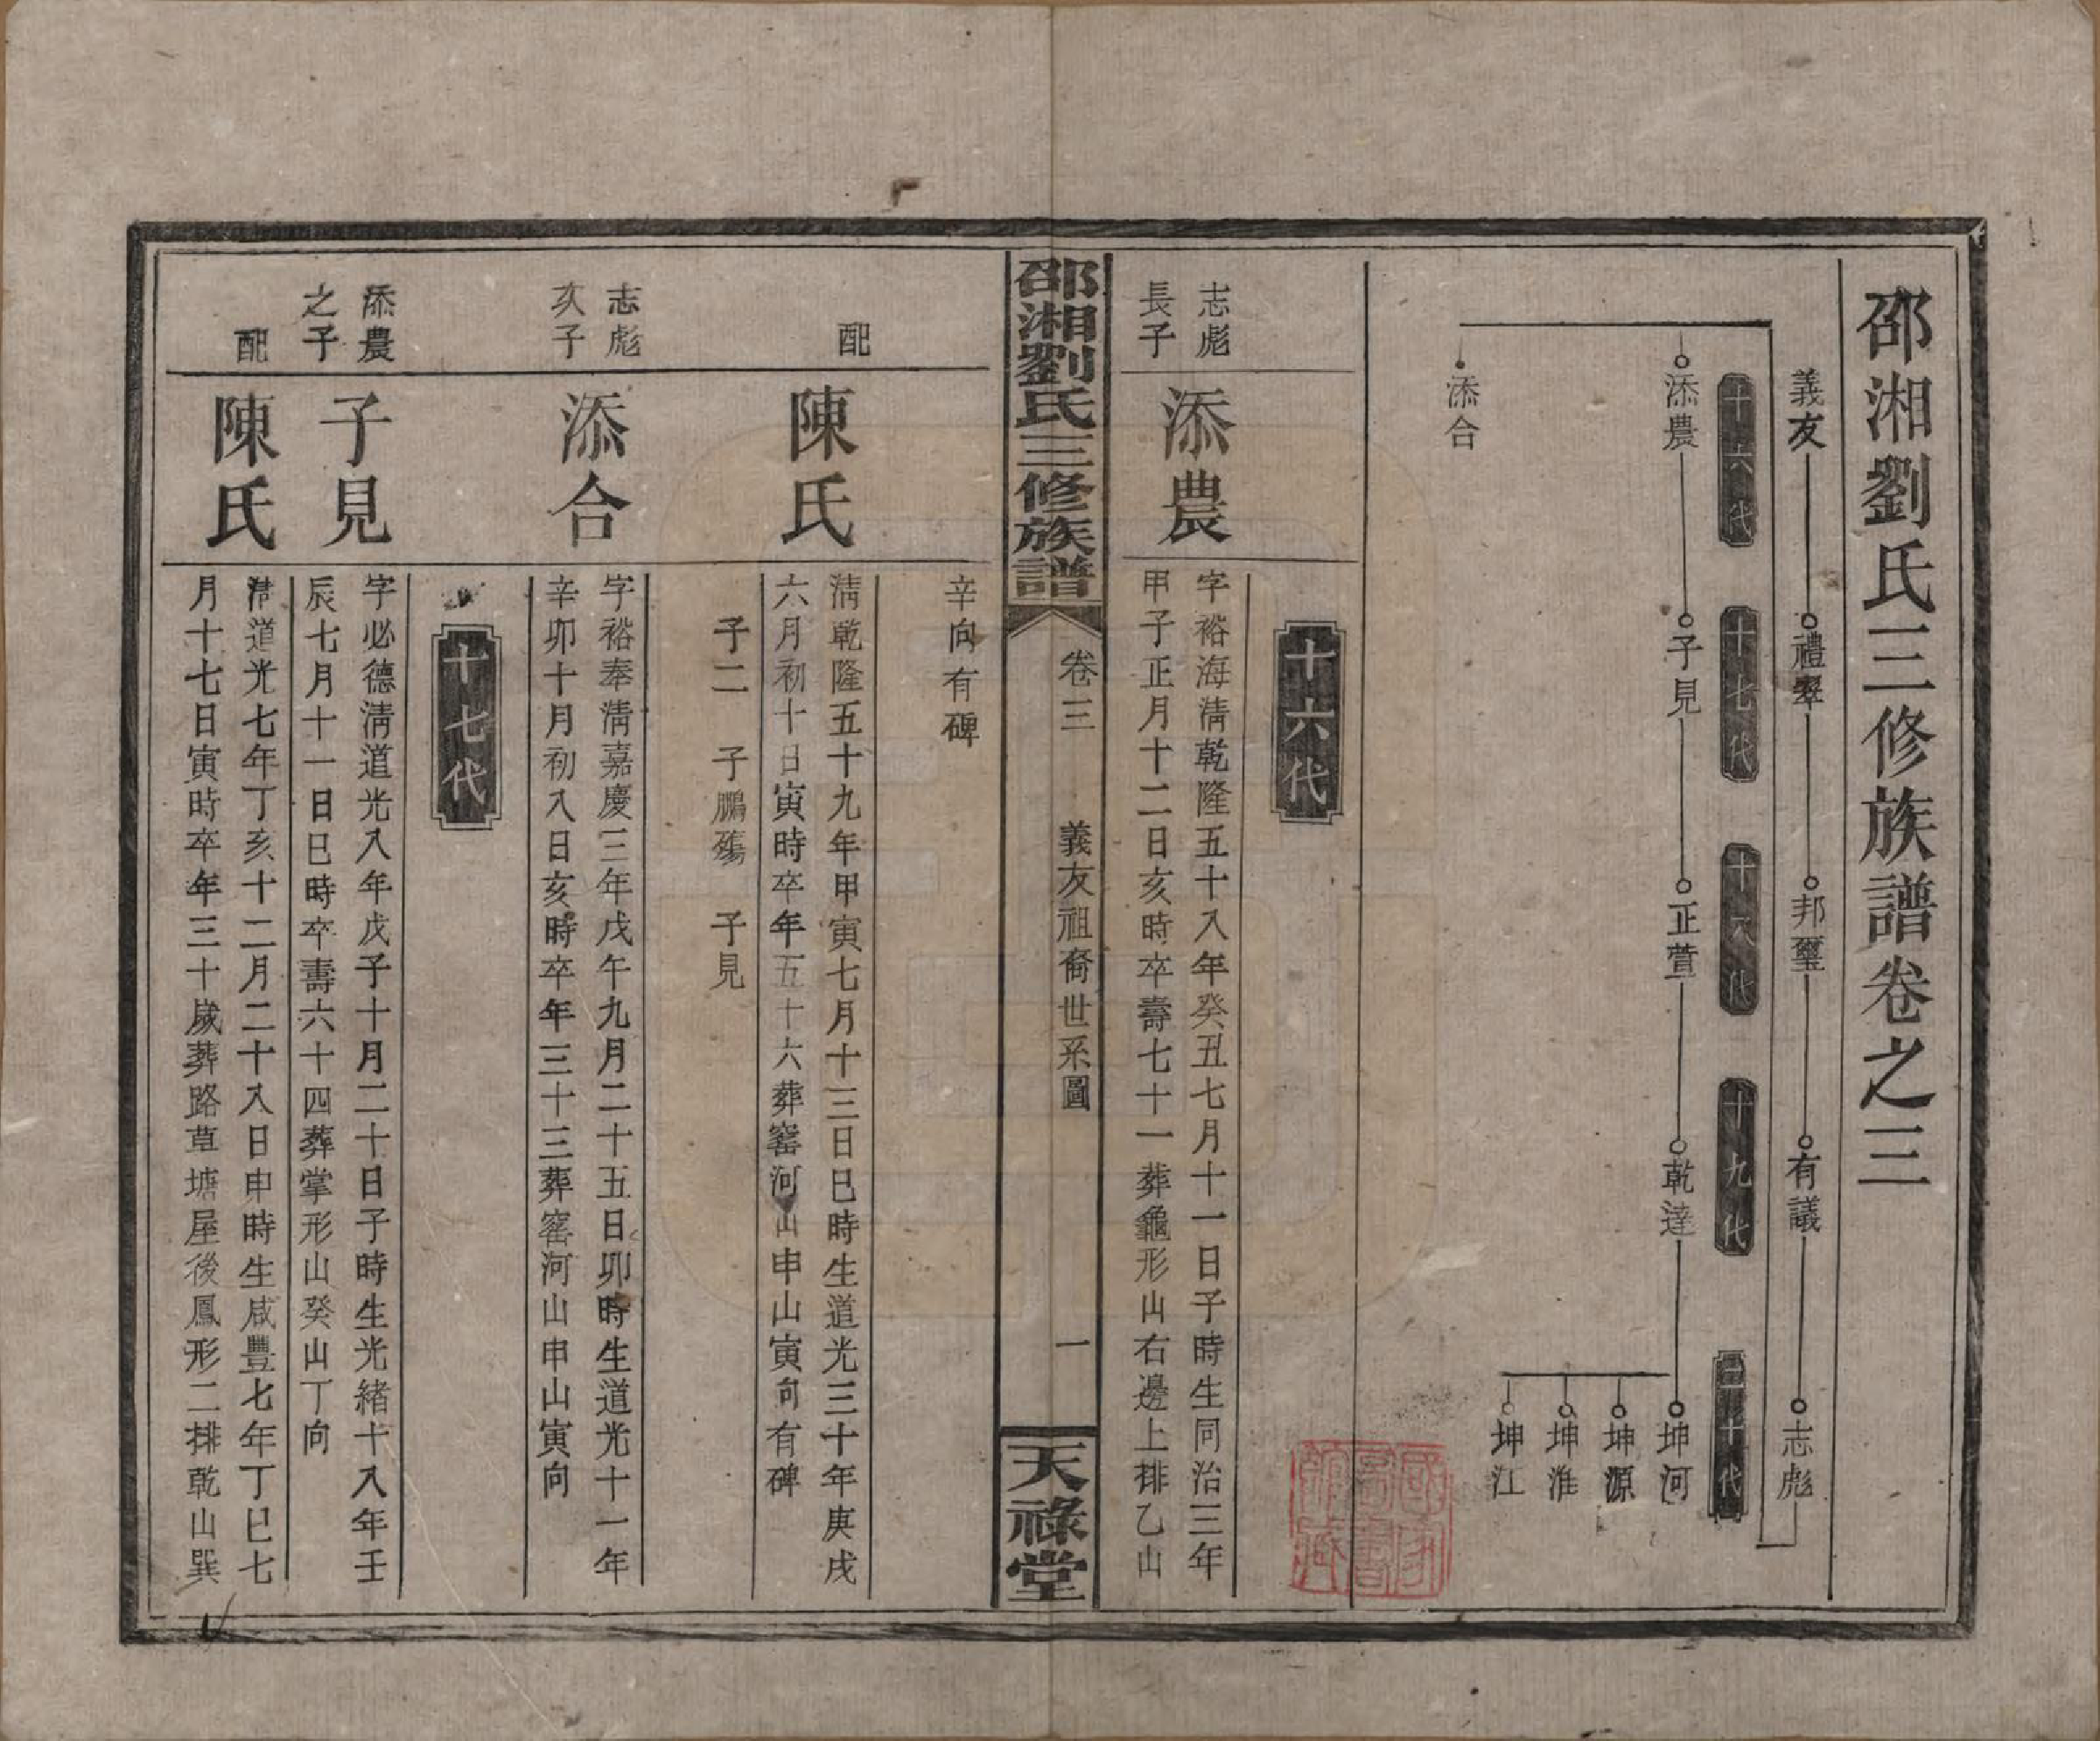 邵湘劉氏三修族譜卷之三
義友 禮翠 邦璽 有議 志彪
十六代 十七代 十八代 十九代 二十代
添農 子見 正萱 乾達 坤河
坤源
坤淮
坤江
添合
十六代
志彪
長子
添農
字裕海淸乾隆五十八年癸丑七月十一日子時生同治三年
甲子正月十二日亥時卒壽七十一葬龜形山右邊上排乙山
邵湘劉氏三修族譜
卷三 義友祖裔世系圖 一
天祿堂
辛向有碑
配
陳氏
淸乾隆五十九年甲寅七月十三日巳時生道光三十年庚戌
六月初十日寅時卒年五十六葬窰河山申山寅向有碑
子二 子鵬殤 子見
志彪
次子
添合
字裕奉淸嘉慶三年戊午九月二十五日卯時生道光十一年
辛卯十月初八日亥時卒年三十三葬窰河山申山寅向
十七代
添農
之子
子見
字必德淸道光八年戊子十月二十日子時生光緒十八年壬
辰七月十一日巳時卒壽六十四葬掌形山癸山丁向
配
陳氏
淸道光七年丁亥十二月二十八日申時生咸豐七年丁巳七
月十七日寅時卒年三十歲葬路草塘屋後鳳形二排乾山巽